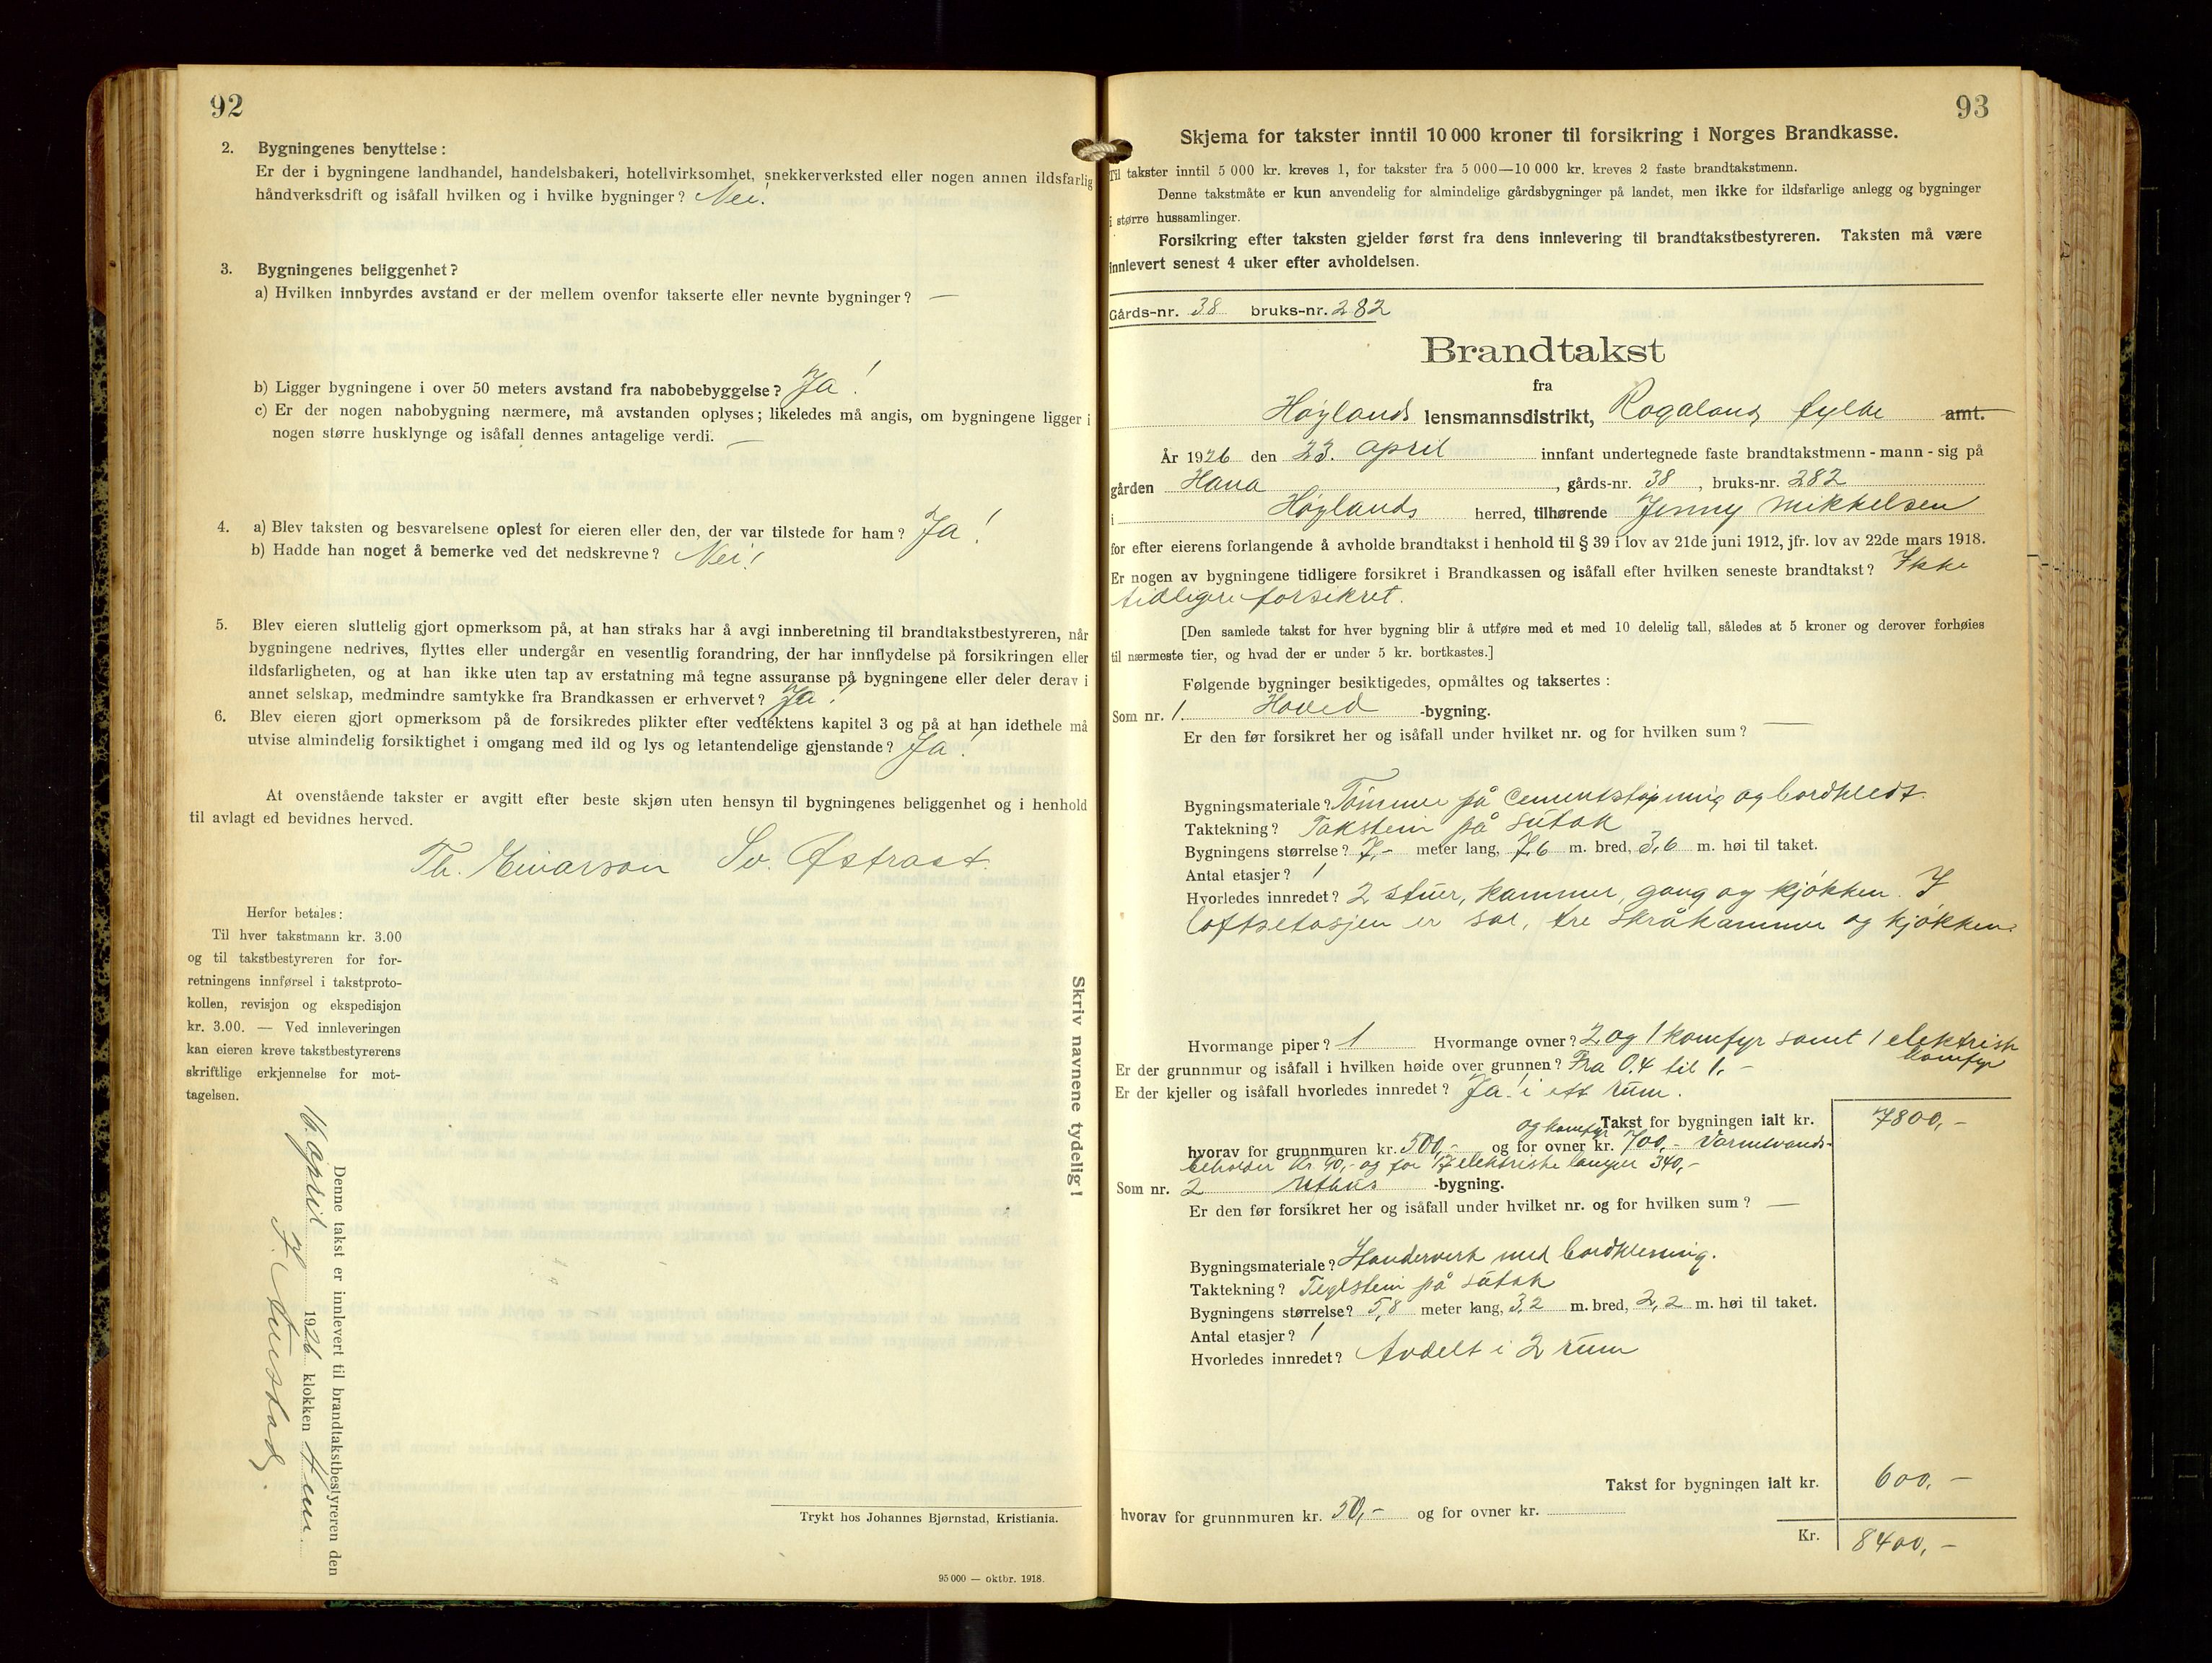 92
2. Bygningenes benyttelse:
Er der i bygningene landhandel, handelsbakeri, hotellvirksomhet, snekkerverksted eller nogen annen ildsfarlig
håndverksdrift og isåfall hvilken og i hvilke bygninger? Nei!
3. Bygningenes beliggenhet?
a) Hvilken innbyrdes avstand er der mellem ovenfor takserte eller nevnte bygninger? —
b) Ligger bygningene i over 50 meters avstand fra nabobebyggelse? Ja!
c) Er der nogen nabobygning nærmere, må avstanden oplyses; likeledes må angis, om bygningene ligger i
nogen større husklynge og isåfall dennes antagelige verdi. —
4. a) Blev taksten og besvarelsene oplest for eieren eller den, der var tilstede for ham? Ja!
b) Hadde han noget å bemerke ved det nedskrevne? Nei!
5. Blev eieren sluttelig gjort opmerksom på, at han straks har å avgi innberetning til brandtakstbestyreren, når
bygningene nedrives, flyttes eller undergår en vesentlig forandring, der har innflydelse på forsikringen eller
ildsfarligheten, og at han ikke uten tap av erstatning må tegne assuranse på bygningene eller deler derav i
annet selskap, medmindre samtykke fra Brandkassen er erhvervet? Ja!
6. Blev eieren gjort opmerksom på de forsikredes plikter efter vedtektens kapitel 3 og på at han idethele må
utvise almindelig forsiktighet i omgang med ild og lys og letantendelige gjenstande? Ja!
At ovenstående takster er avgitt efter beste skjøn uten hensyn til bygningenes beliggenhet og i henhold
til avlagt ed bevidnes herved.
Th. Einarson Sv. Østraat.
Herfor betales:
Til hver takstmann kr. 3.00
og til takstbestyreren for for-
retningens innførsel i takstproto-
kollen, revisjon og ekspedisjon
kr. 3.00. — Ved innleveringen
kan eieren kreve takstbestyrerens
skriftlige erkjennelse for mot-
tagelsen.
Denne takst er innlevert til brandtakstbestyreren den
april 1926 klokken
Skriv navnene tydelig!
Trykt hos Johannes Bjørnstad, Kristiania.
95 000 — oktbr. 1918.
93
Skjema for takster inntil 10 000 kroner til forsikring i Norges Brandkasse.
Til takster inntil 5 000 kr. kreves 1, for takster fra 5 000—10 000 kr. kreves 2 faste brandtakstmenn.
Denne takstmåte er kun anvendelig for almindelige gårdsbygninger på landet, men ikke for ildsfarlige anlegg og bygninger
i større hussamlinger.
Forsikring efter taksten gjelder først fra dens innlevering til brandtakstbestyreren. Taksten må være
innlevert senest 4 uker efter avholdelsen.
Gårds-nr. 38 bruks-nr. 282
Brandtakst
fra
Høylands lensmannsdistrikt, Rogaland fylke amt.
År 1926 den 23. april innfant undertegnede faste brandtakstmenn - mann - sig på
gården Hana, gårds-nr. 38, bruks-nr. 282
i Høylands herred, tilhørende Jenny Mikkelsen
for efter eierens forlangende å avholde brandtakst i henhold til § 39 i lov av 21de juni 1912, jfr. lov av 22de mars 1918.
Er nogen av bygningene tidligere forsikret i Brandkassen og isåfall efter hvilken seneste brandtakst? Ikke
tidligere forsikret.
[Den samlede takst for hver bygning blir å utføre med et med 10 delelig tall, således at 5 kroner og derover forhøies
til nærmeste tier, og hvad der er under 5 kr. bortkastes.]
Følgende bygninger besiktigedes, opmåltes og taksertes:
Som nr. 1. Hoved -bygning.
Er den før forsikret her og isåfall under hvilket nr. og for hvilken sum? —
Bygningsmateriale? Tømmer på cementstøpning og bordkledt.
Taktekning? Takstein på sutak
Bygningens størrelse? 7,- meter lang, 7,6 m. bred, 3,6 m. høi til taket.
Antal etasjer? 1
Hvorledes innredet? 2 stuer, kammer, gang og kjøkken. I
loftsetasjen er sal, tre skråkammer og kjøkken.
Hvormange piper? 1 Hvormange ovner? 2 og 1 komfyr samt 1 elektrisk
komfyr
Er der grunnmur og isåfall i hvilken høide over grunnen? Fra 0.4 til 1,-
Er der kjeller og isåfall hvorledes innredet? Ja! i ett rum.
Takst for bygningen ialt kr. 7800,-
og komfyr
hvorav for grunnmuren kr. 500,- og for ovner kr. 700,- Varmtvands-
beholder kr. 90,- og for 17 elektriske lamper 340,-
Som nr. 2 Uthus -bygning.
Er den før forsikret her og isåfall under hvilket nr. og for hvilken sum? —
Bygningsmateriale? Standerverk med bordkledning.
Taktekning? Teglstein på sutak
Bygningens størrelse? 5,8 meter lang, 3,2 m. bred, 2,2 m. høi til taket.
Antal etasjer? 1
Hvorledes innredet? Avdelt i 2 rum
Takst for bygningen ialt kr. 600,-
hvorav for grunnmuren kr. 50,- og for ovner kr.
Kr. 8400,-